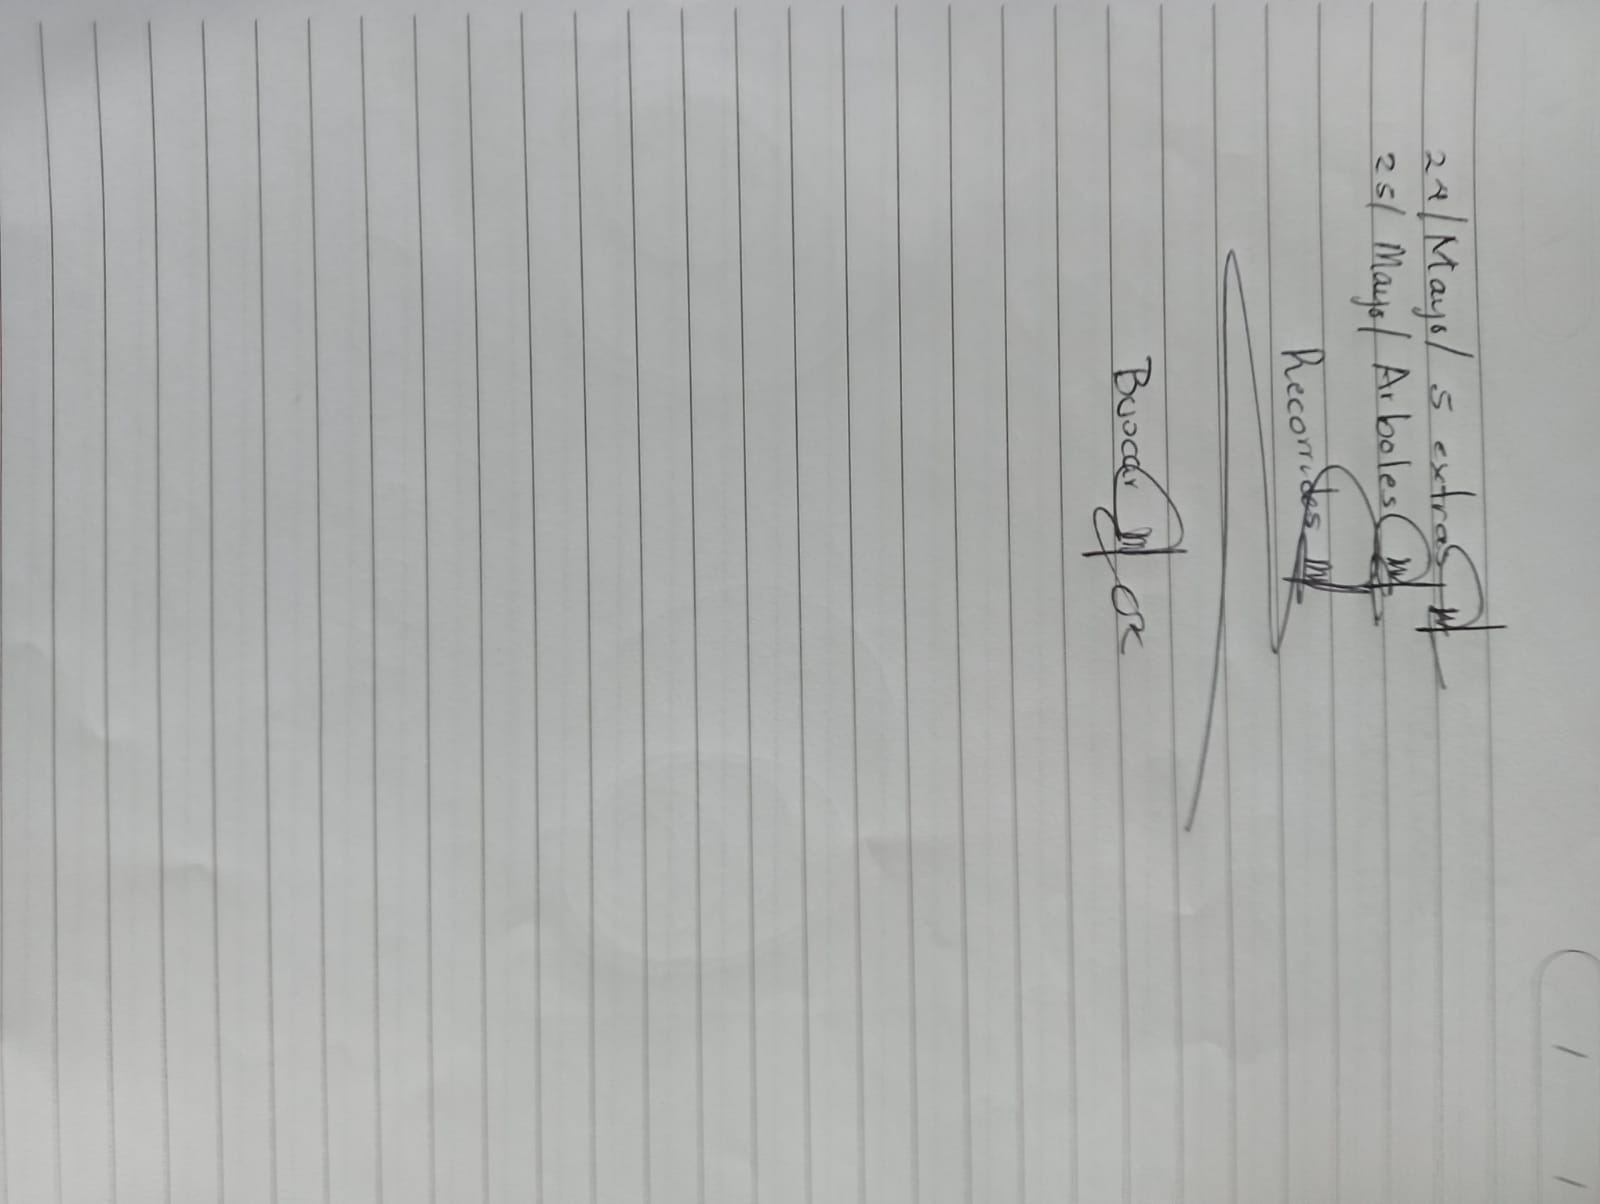 24/Mayo/ 5 extras
25/ Mayo/ Arboles
Recorridos
OK